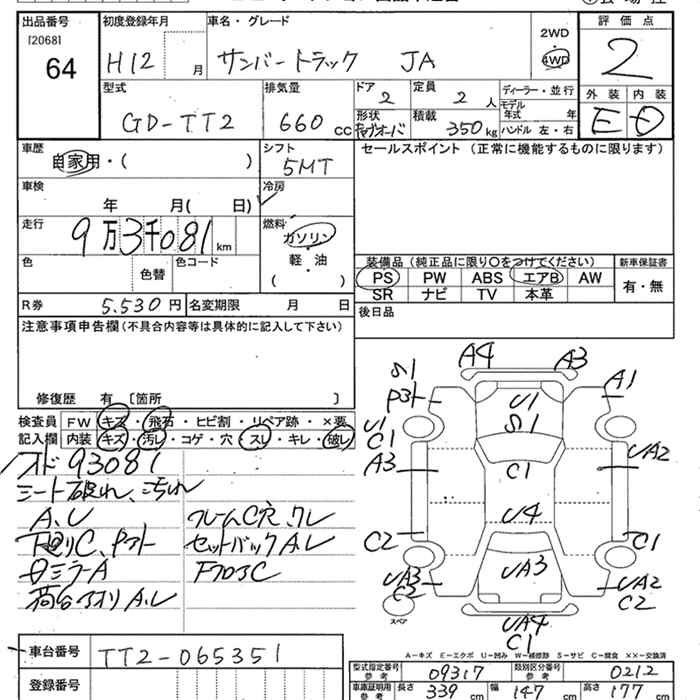 出品番号 初度登録年月 車名・グレード 2WD 4WD 評価点
[2068]
64 H12 月 サンバートラック JA 2
型式 排気量 ドア 定員 ディーラー・並行 外装 内装
GD-TT2 660 cc 2 2 人 モデル年式 年 E D
形状 積載 350 kg ハンドル 左・右
車歴 シフト セールスポイント (正常に機能するものに限ります)
自家用・( ) 5MT
車検 冷房
年 月( 日)
走行 燃料
9万3千081 km ガソリン
軽・油
( )
色 色替 色コード
装備品(純正品に限り○をつけてください) 新車保証書
PS PW ABS エアB AW 有・無
SR ナビ TV 本革
R券 5.530 円 名変期限 月 日 後日品
注意事項申告欄(不具合内容等は具体的に記入して下さい)
修復歴 有 [箇所 ]
検査員 FW キズ・飛石・ヒビ割・リペア跡・×要
記入欄 内装 キズ・汚レ・コゲ・穴・スレ・キレ・破レ
93081
シート破れ、こげれ
A、U フレームC穴、クレ
下回りC、Pアト セットバックA、レ
ミラーA フロアC
荷台アオリA、レ
A4 A3
S1 A1
Pヨト U1
S1
U1
C1 UA2
A3 C1
U4
C2 C1
UA3
UA3 UA2
C2 C2
スペア UA4
C1
A-キズ E-エクボ U-凹み W-補修跡 S-サビ C-腐食 XX-交換済
車台番号 TT2-065351
型式指定番号 参考 09317 類別区分番号 参考 0212
登録番号 車庫証明用 参考 長さ 339 cm 幅 147 cm 高さ 177 cm